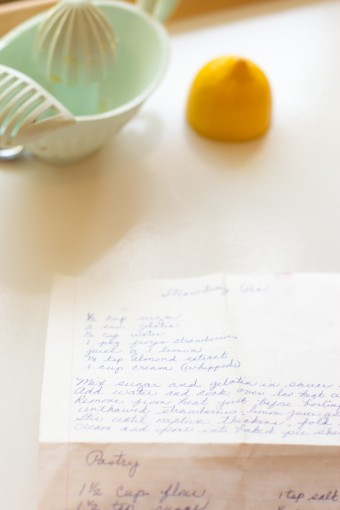 Strawberry Pie
½ cup sugar
2 env. gelatin
½ cup water
1 pkg frozen strawberries
juice of 1 lemon
¼ tsp almond extract
1 cup cream (whipped)
Mix sugar and gelatin in sauce
Add water and cook over low heat
Remove from heat just before boiling
unthawed strawberries, lemon juice
Stir until mixture thickens, fold
cream and pour into baked pie
Pastry
1½ cup flour
1 tsp salt